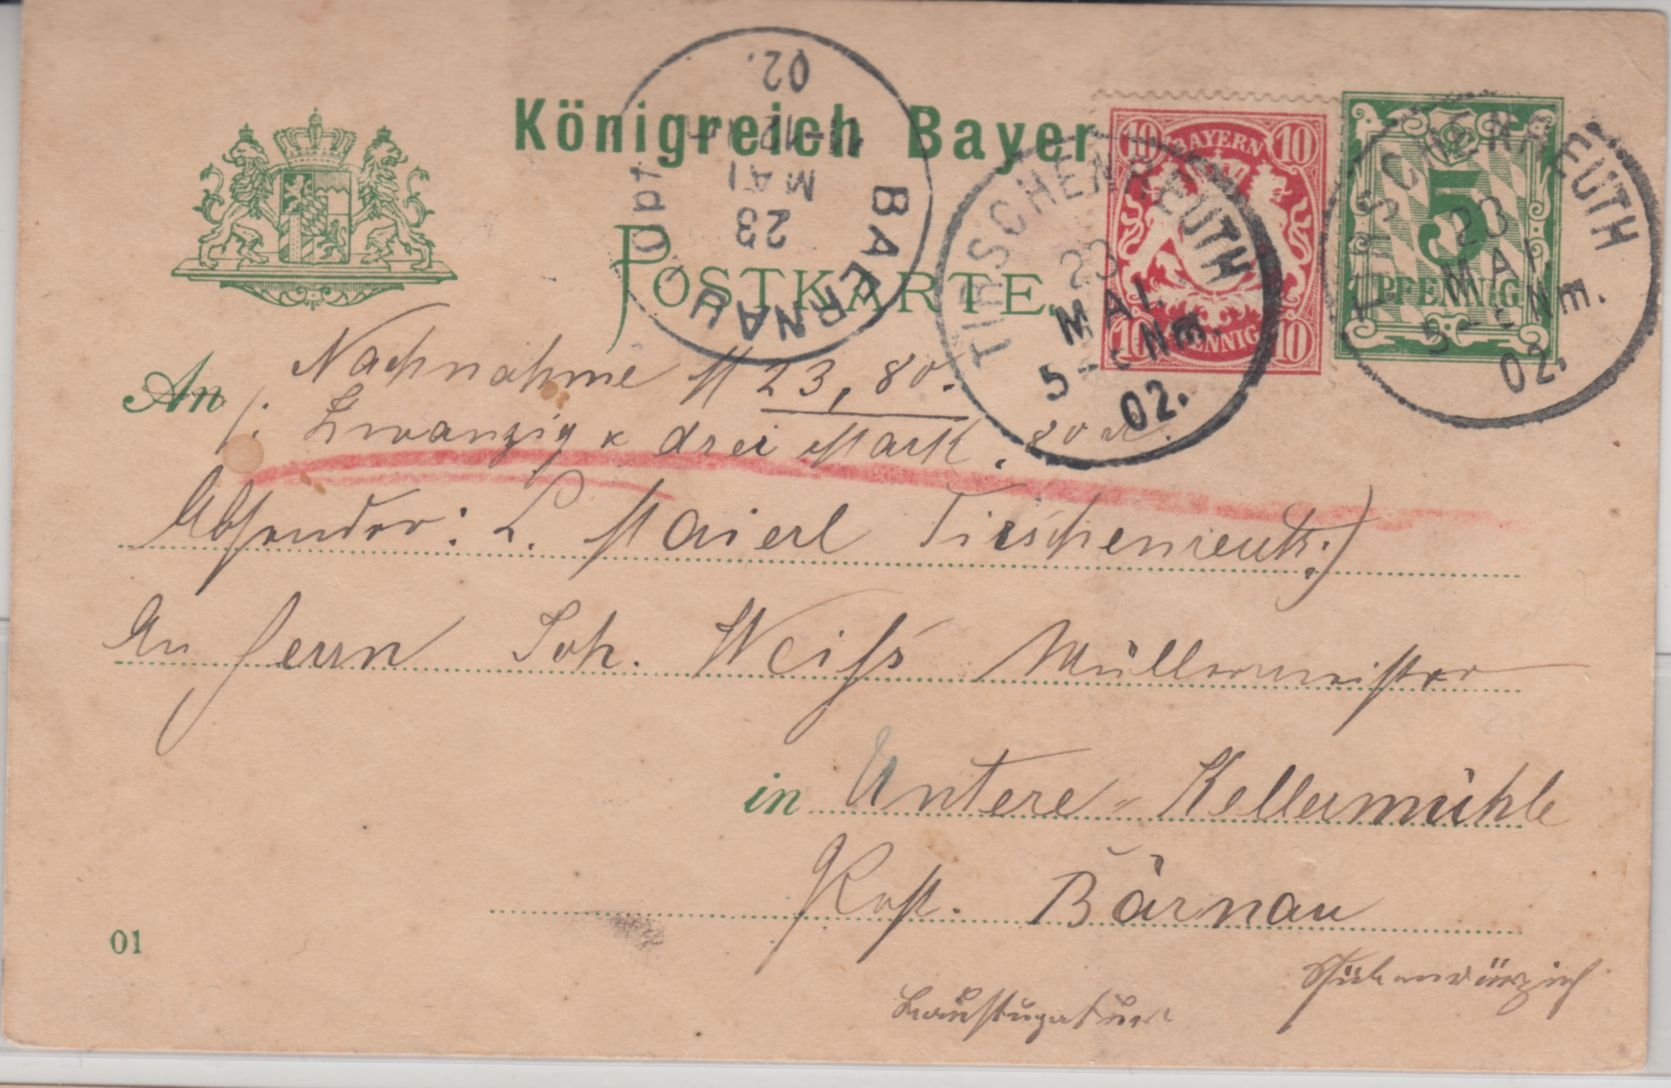 Königreich Bayer
POSTKARTE.
BAERNAU
23
MAI
02.
Opt
10 BAYERN 10
10 PFENNIG 10
5
PFENNIG
TIRSCHENREUTH
23
MAI.
5-6 Nm.
02.
TIRSCHENREUTH
23
MAI.
5-6 Nm.
02.
Nachnahme M 23,80.
An
/: Zwanzig & drei Mark. 80 d.
Absender: L. Maierl Tirschenreuth:)
An Herrn Joh. Weiß Müllermeister
in Untere-Kellermühle
Post. Bärnau
01